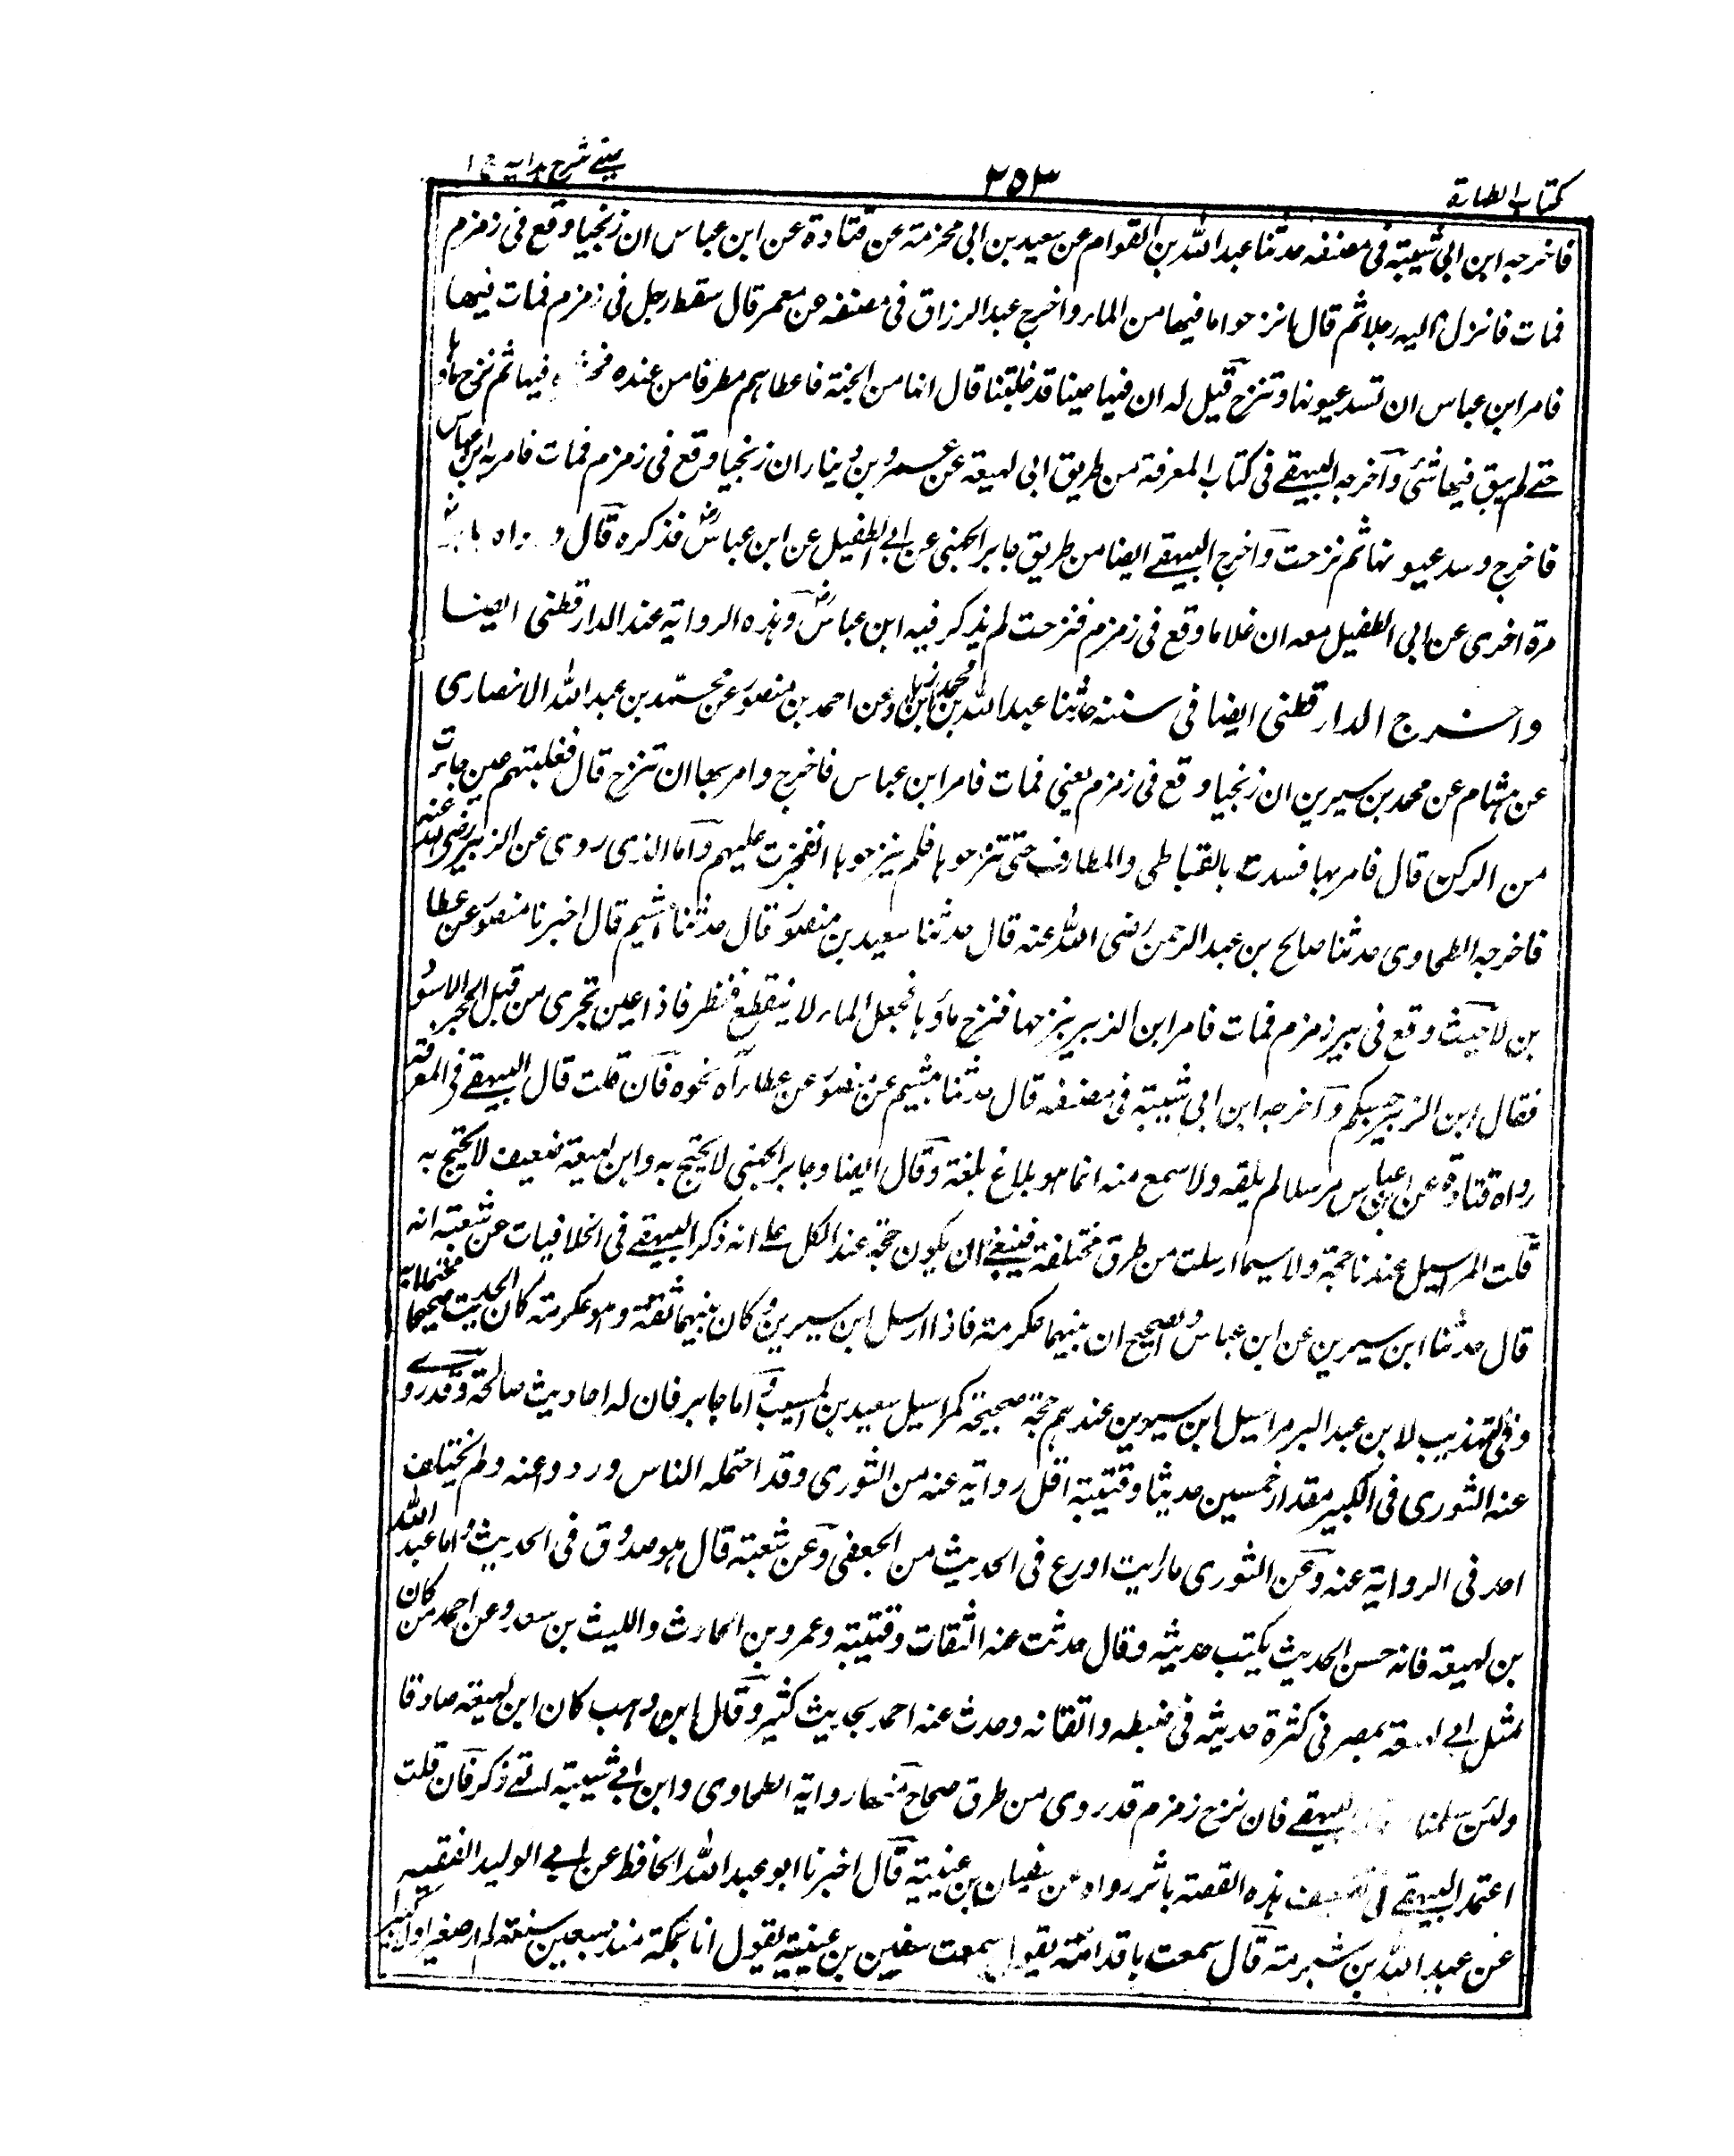 كتاب الطهارة ٣٥٣ عينى شرح هدايه ج ١
فاخرجه ابن ابى شيبة فى مصنفه حدثنا عبد الله بن القوام عن سعيد بن ابى محزمة عن قتادة عن ابن عباس ان زنجيا وقع فى زمزم
فمات فانزل اليه رجلا ثم قال انزحوا ما فيها من الماء واخرج عبد الرزاق فى مصنفه عن معمر قال سقط رجل فى زمزم فمات فيها
فامر ابن عباس ان تسد عيونها وتنزح قيل له ان فيها عينا قد غلبتنا قال انها من الجنة فاعطاهم مطرفا من عنده فيها ثم نزح ماؤها
حتى لم يبق فيها شئ واخرجه البيهقى فى كتاب المعرفة من طريق ابى لهيعة عن عمرو بن دينار ان زنجيا وقع فى زمزم فمات فامر به ابن عباس
فاخرج وسد عيونها ثم نزحت واخرج البيهقى ايضا من طريق جابر الجعفى عن ابى الطفيل عن ابن عباس فذكره قال ورواه جابر
مرة اخرى عن ابى الطفيل معه ان غلاما وقع فى زمزم فنزحت لم يذكر فيه ابن عباس وهذه الرواية عند الدارقطنى ايضا
واخرج الدارقطنى ايضا فى سننه حدثنا عبد الله بن محمد بن زياد عن احمد بن منصور عن محمد بن عبد الله الانصارى
عن هشام عن محمد بن سيرين ان زنجيا وقع فى زمزم يعنى فمات فامر ابن عباس فاخرج وامر بها ان تنزح قال فغلبتهم عين جاءت
من الركن قال فامر بها فسدت بالقباطى والمطارف حتى تنزحوها فلم ينزحوها انفجرت عليهم واما الذى روى عن الزبير رضى الله عنه
فاخرجه الطحاوى حدثنا صالح بن عبد الرحمن رضى الله عنه قال حدثنا سعيد بن منصور قال حدثنا هشيم قال اخبرنا منصور عن عطا
بن لاحبث وقع فى بير زمزم فمات فامر ابن الزبير بنزحها فنزح ماؤها فجعل الماء لا ينقطع فنظر فاذا عين تجرى من قبل الحجر الاسود
فقال ابن الزبير حسبكم واخرجه ابن ابى شيبة فى مصنفه قال حدثنا هشيم عن منصور عن عطاء رآه نحوه فان قلت قال البيهقى فى المعرفة
رواه قتادة عن ابن عباس مرسلا لم يلقه ولا سمع منه انما هو بلاغ بلغه وقال ايضا وجابر الجعفى لا يحتج به وابن لهيعة ضعيف لا يحتج به
قلت المراسيل عندنا حجة ولا سيما ارسلت من طرق مختلفة فينبغى ان يكون حجة عند الكل على انه ذكر البيهقى فى الخلافيات عن شعبة انه
قال حدثنا ابن سيرين عن ابن عباس والصحيح ان بينهما عكرمة فاذا ارسل ابن سيرين وكان بينهما ثقة وهو عكرمة كان الحديث صحيحا محتملا به
وفى التهذيب لابن عبد البر مراسيل ابن سيرين عندهم حجة صحيحة كمراسيل سعيد بن المسيب واما جابر فان له احاديث صالحة وقد روى
عنه الثورى فى الكبير مقدار خمسين حديثا وقتيبة اقل رواية عنه من الثورى وقد احتمله الناس ورووا عنه ولم يختلف
احد فى الرواية عنه وعن الثورى ما رايت اورع فى الحديث من الجعفى وعن شعبة قال هو صدوق فى الحديث واما عبد الله
بن لهيعة فانه حسن الحديث يكتب حديثه وقال حدثت عنه الثقات وقتيبة وعمرو بن الحارث والليث بن سعد وعن احمد من كان
مثل ابى لهيعة بمصر فى كثرة حديثه فى ضبطه واتقانه وحدث عنه احمد بحديث كثير وقال ابن وهب كان ابن لهيعة صادقا
ولئن سلمنا البيهقى فان نزح زمزم قد روى من طرق صحاح منها رواية الطحاوى وابن ابى شيبة ذكر فان قلت
اعتمد البيهقى فى تضعيف هذه القصة باثر رواه عن سفيان بن عيينة قال اخبرنا ابو عبد الله الحافظ عن ابى الوليد الفقيه
عن عبد الله بن شبرمة قال سمعت با قدامة يقول سمعت سفين بن عيينة يقول انا بمكة منذ سبعين سنة لم ار صغيرا ولا كبيرا